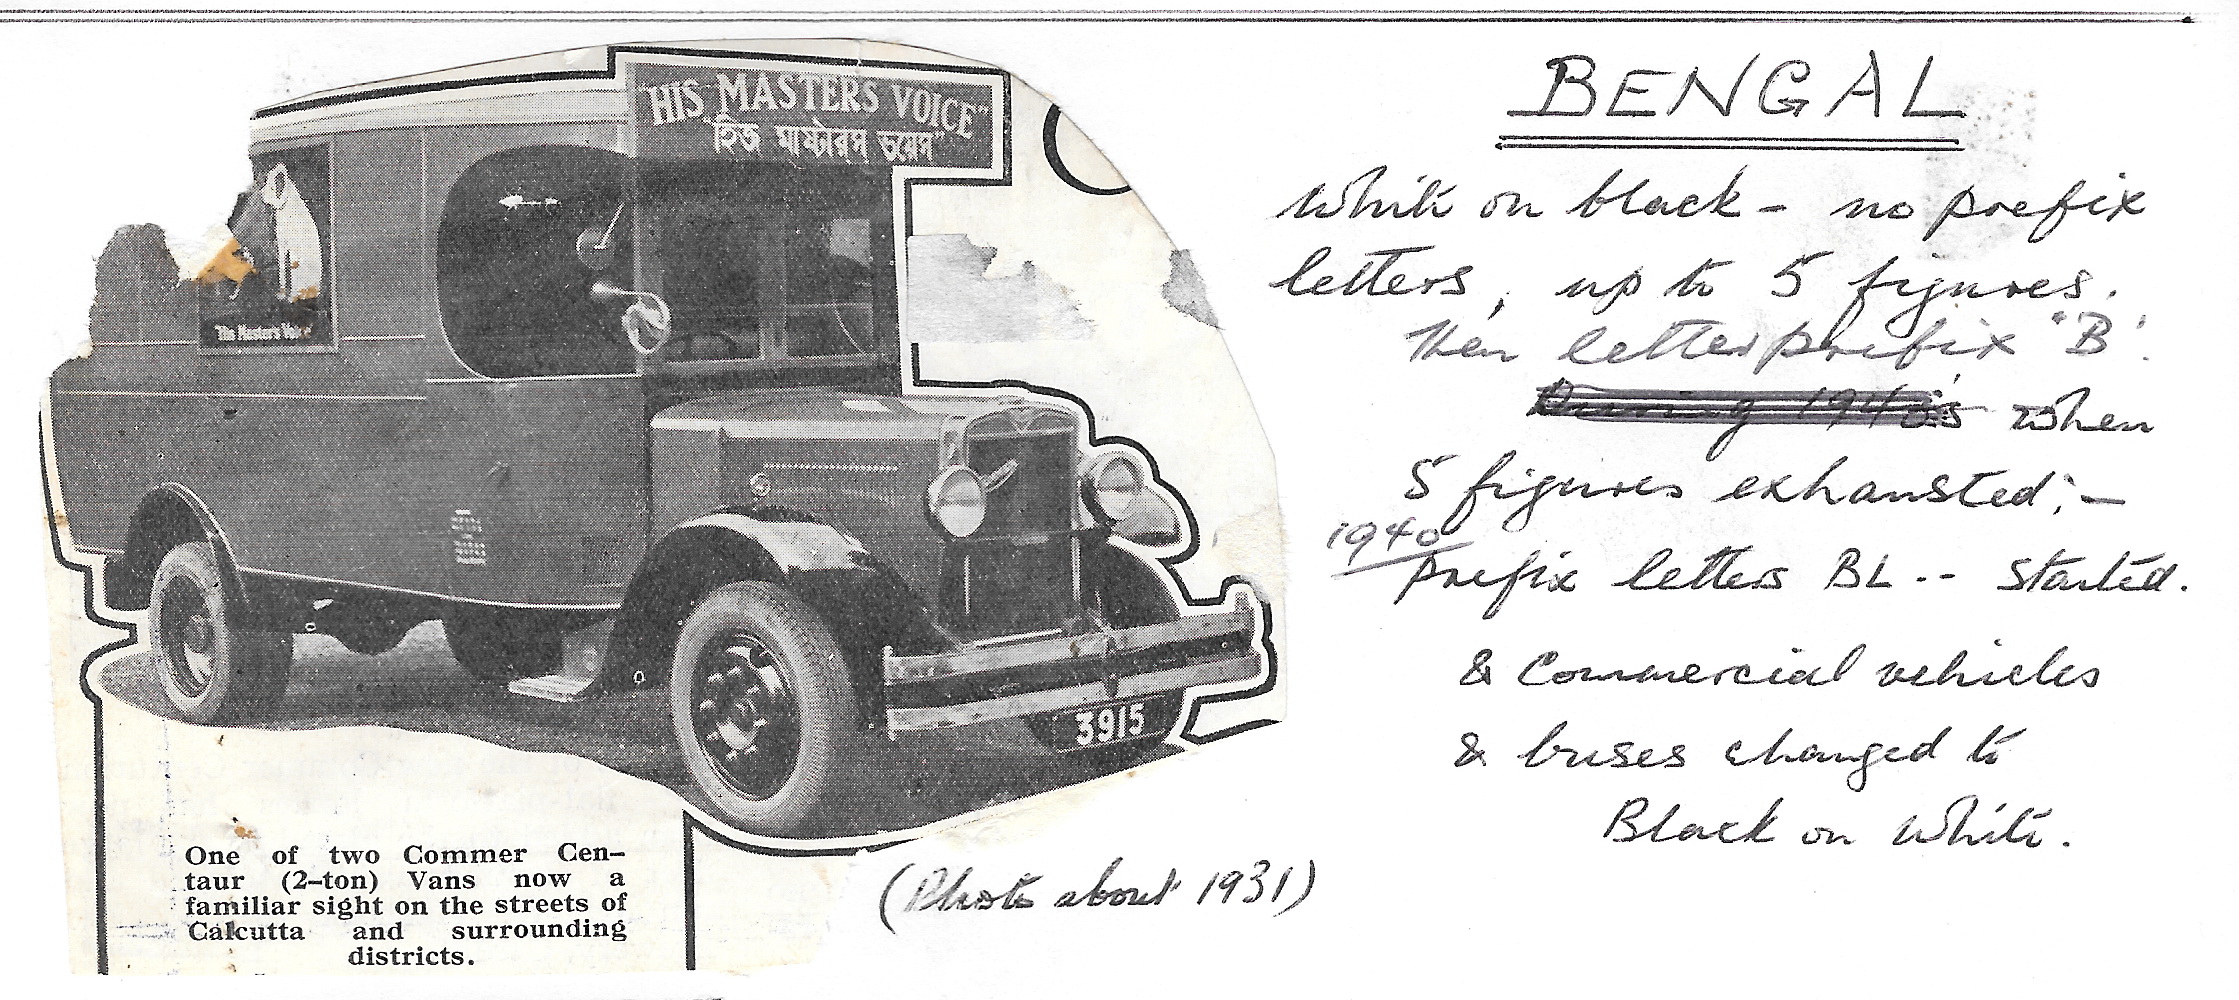 "HIS MASTERS VOICE"
"হিজ মাষ্টারস্ ভয়েস"
"His Master's Voice"
3915
One of two Commer Cen-
taur (2-ton) Vans now a
familiar sight on the streets of
Calcutta and surrounding
districts.
(Photo about 1931)
BENGAL
White on black - no prefix
letters, up to 5 figures.
Then letter prefix "B".
During 1940's when
5 figures exhausted;-
1940
prefix letters BL -- started.
& Commercial vehicles
& buses changed to
Black on White.